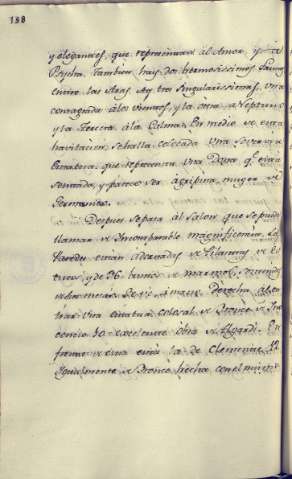 188
y elegantes, que representan al Amor, y a
Psycha. Tambien hay dos hermosissimos Faunos
entre las Aras Ay tres singularissimas, una
consagrada a los vientos, y la otra a Neptuno
y la tercera a la Calma. En medio de esta
havitacion, se halla colocada una sobervia
que representa una Dama q.e esta
sentada, y parece ser Agripina, muger de
Germanico.
Despues se pasa al Salon que se puede
llamar de Incomparable magnificencia. Las
Paredes estan Adornadas de Pilastras de
y de 36 bustos de marmol,
Derecha al en
trar una estatua colosal de Bronce de Ino
cencio 10 excelente obra de Algardi. En
frente de esta està la de Clemente XII
igualmente de Bronce hecha con el mismo